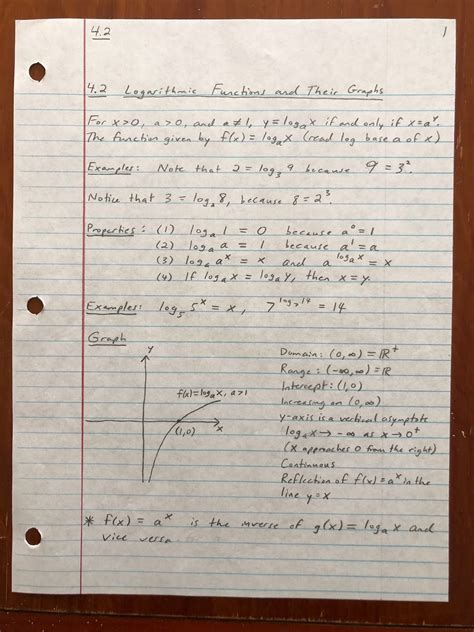 4.2 1
4.2 Logarithmic Functions and Their Graphs
For x>0, a>0, and a≠1, y=logₐx if and only if x=aʸ.
The function given by f(x) = logₐx (read log base a of x)
Examples: Note that 2 = log₃ 9 because 9 = 3².
Notice that 3 = log₂ 8, because 8 = 2³.
Properties: (1) logₐ 1 = 0 because a⁰ = 1
(2) logₐ a = 1 because a¹ = a
(3) logₐ aˣ = x and a^(logₐ x) = x
(4) If logₐ x = logₐ y, then x = y.
Examples: log₅ 5ˣ = x, 7^(log₇ 14) = 14
Graph
y
f(x) = logₐ x, a>1
(1,0)
x
Domain: (0, ∞) = ℝ⁺
Range: (-∞, ∞) = ℝ
Intercept: (1,0)
Increasing on (0, ∞)
y-axis is a vertical asymptote
logₐ x → -∞ as x → 0⁺
(x approaches 0 from the right)
Continuous
Reflection of f(x) = aˣ in the
line y = x
* f(x) = aˣ is the inverse of g(x) = logₐ x and
vice versa